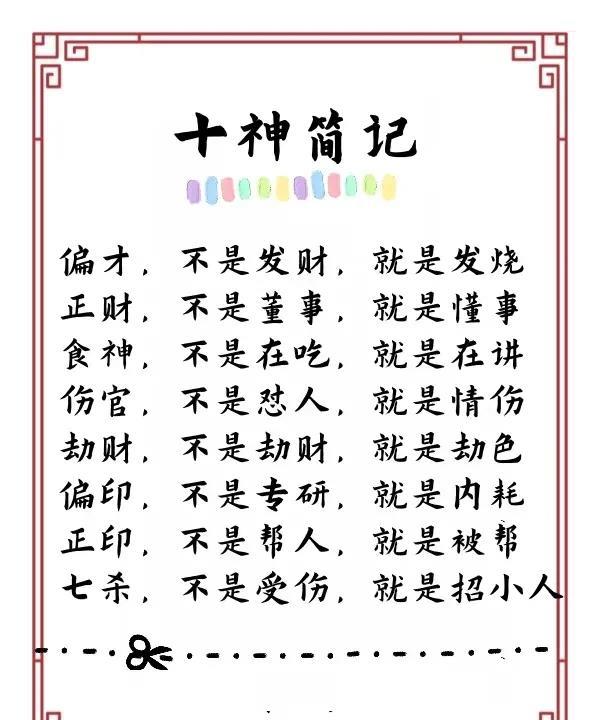 十神简记
偏才，不是发财，就是发烧
正财，不是董事，就是懂事
食神，不是在吃，就是在讲
伤官，不是怼人，就是情伤
劫财，不是劫财，就是劫色
偏印，不是专研，就是内耗
正印，不是帮人，就是被帮
七杀，不是受伤，就是招小人